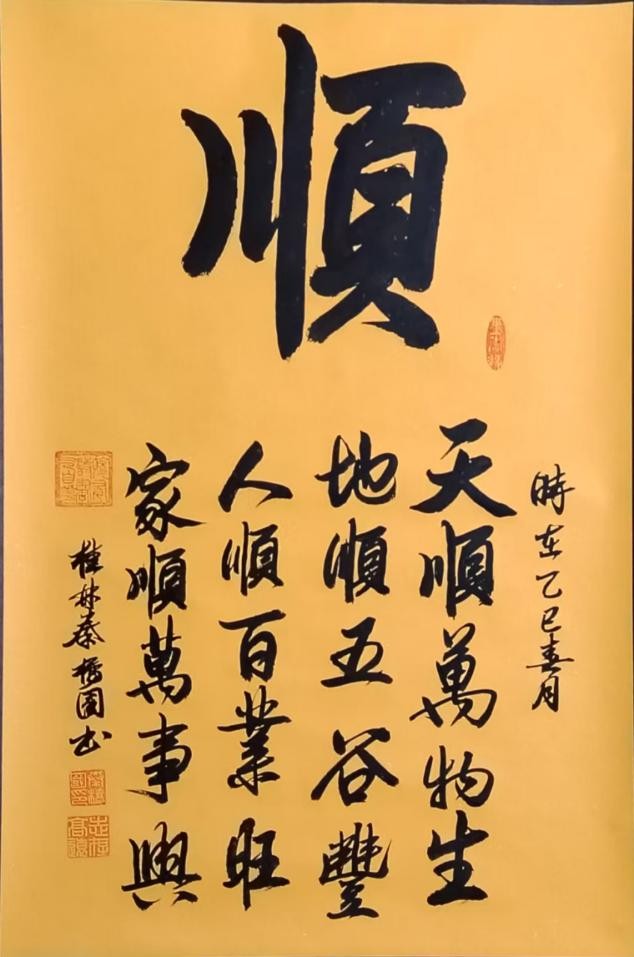 順
時在乙巳春月
天順萬物生
地順五谷豐
人順百業旺
家順萬事興
桂林秦榜國書